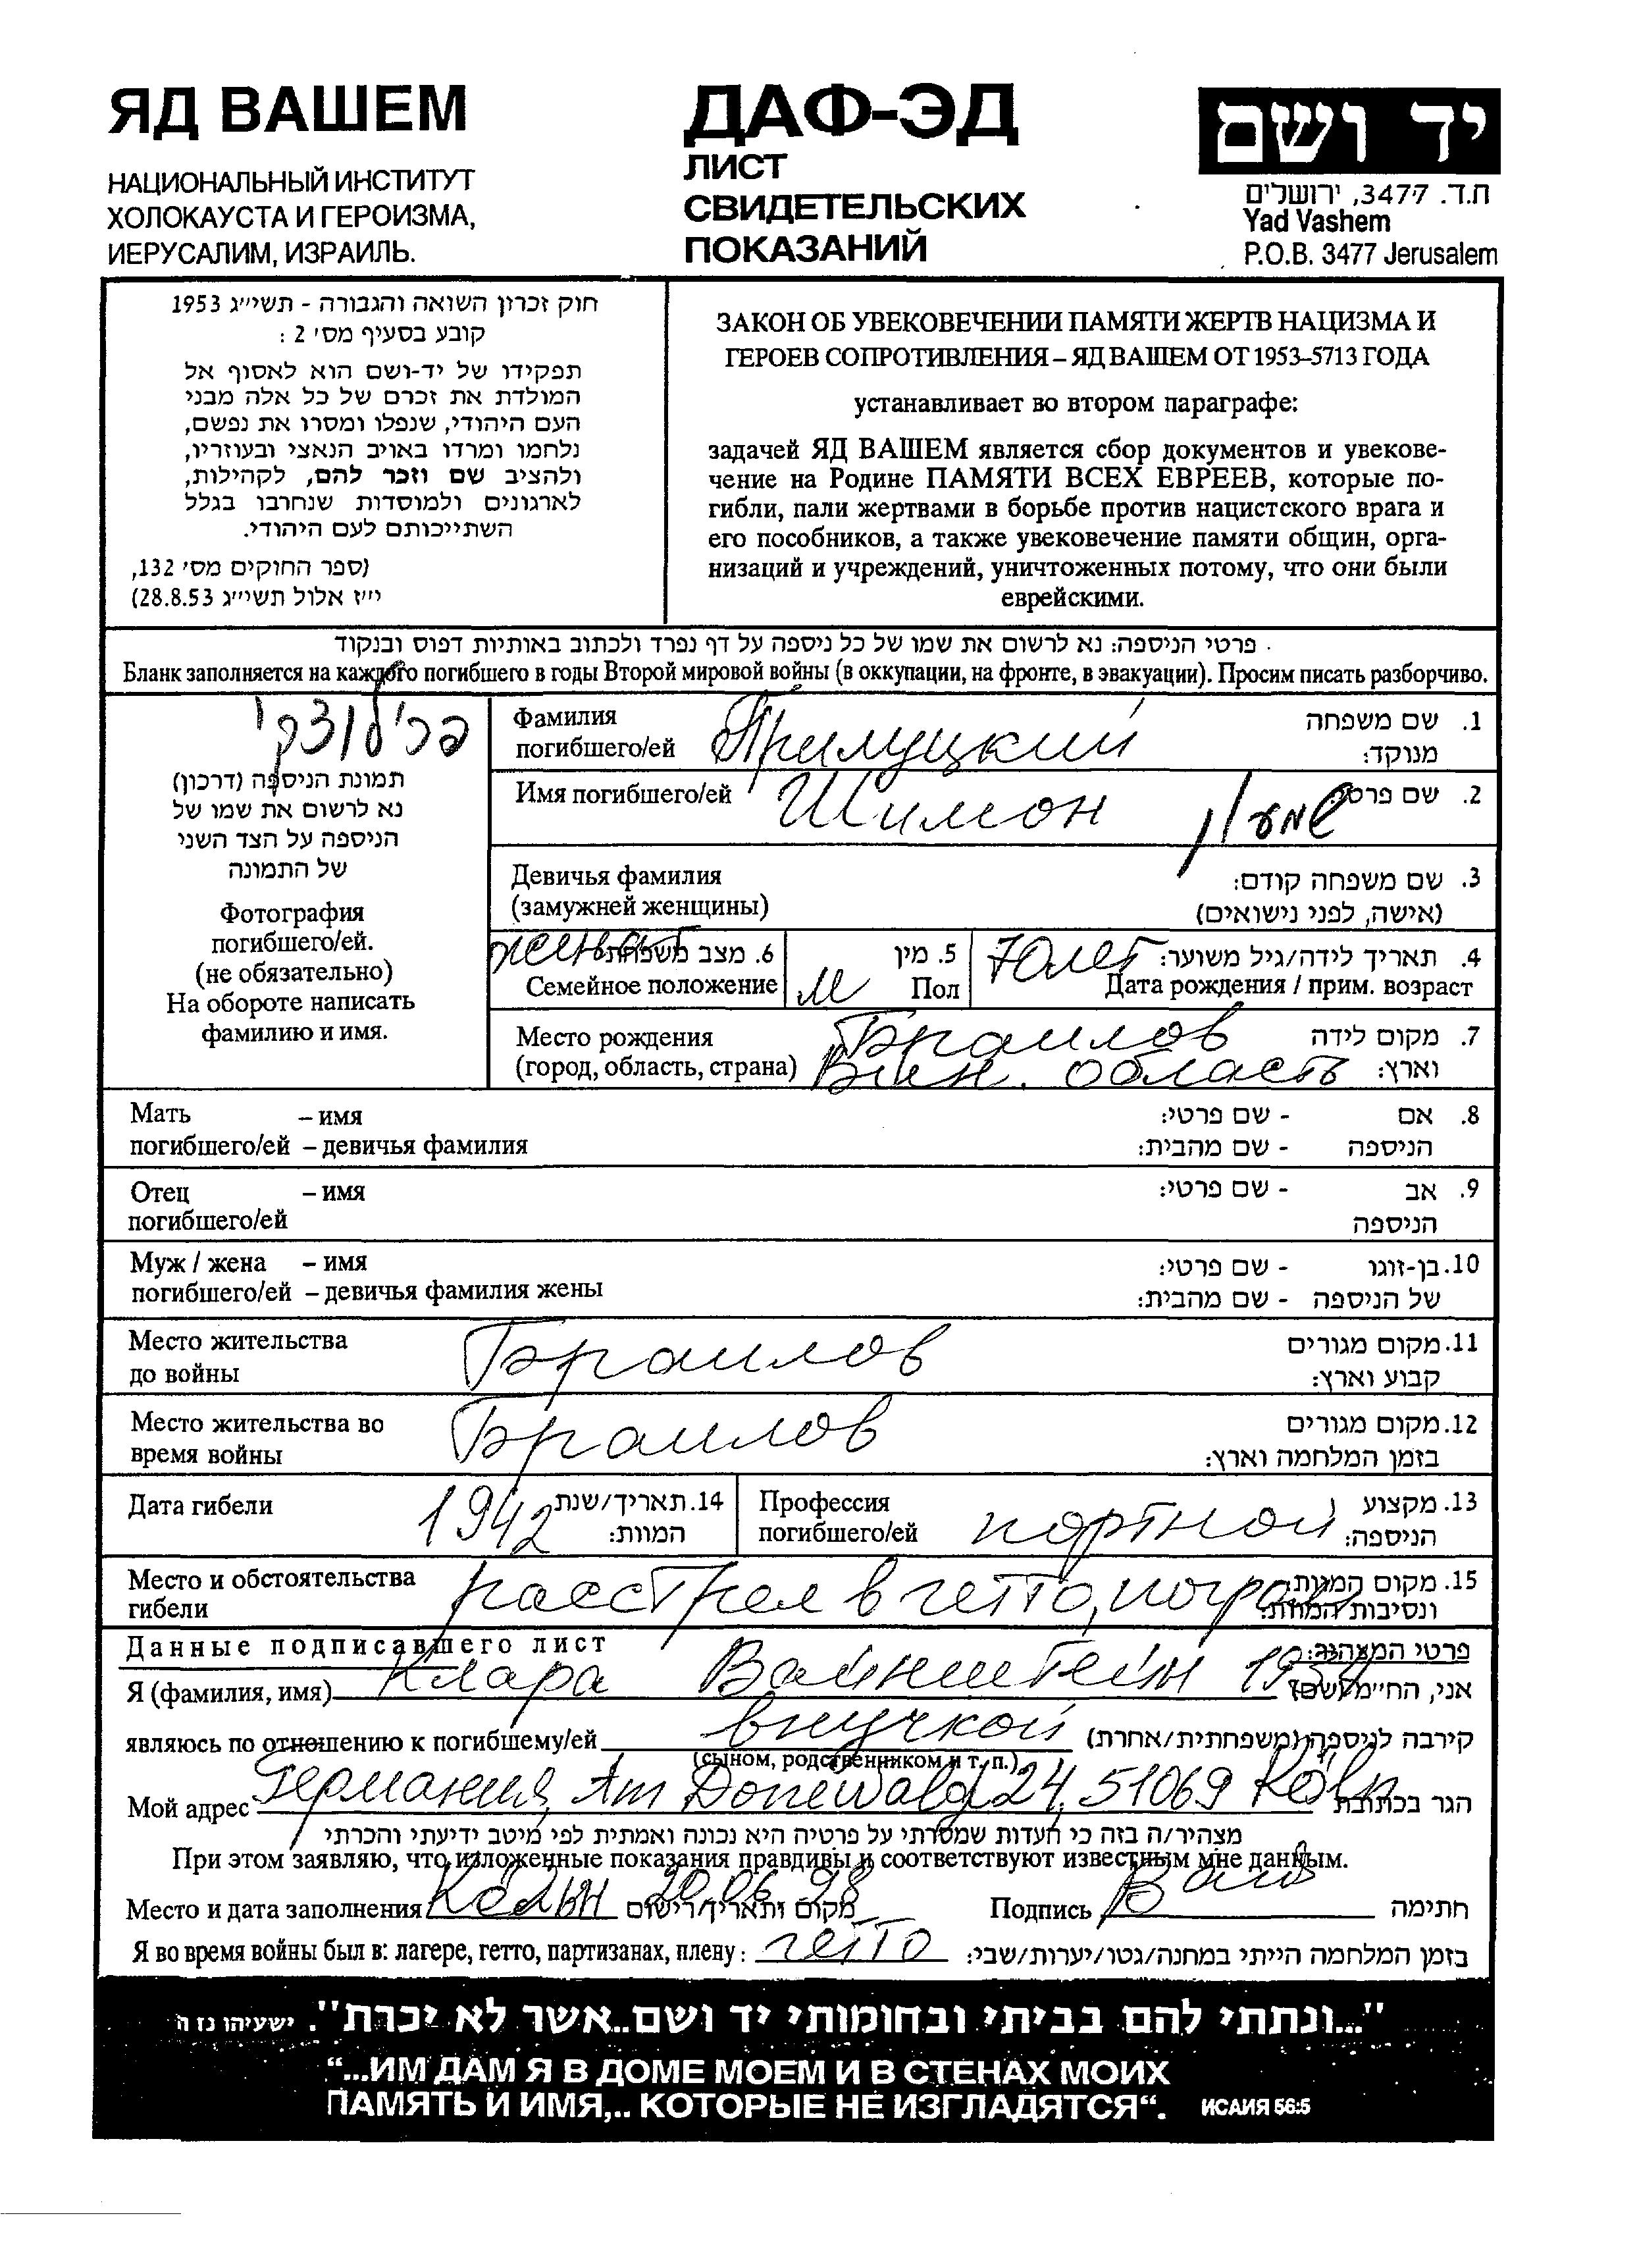 ЯД ВАШЕМ
НАЦИОНАЛЬНЫЙ ИНСТИТУТ
ХОЛОКАУСТА И ГЕРОИЗМА,
ИЕРУСАЛИМ, ИЗРАИЛЬ.
ДАФ-ЭД
ЛИСТ
СВИДЕТЕЛЬСКИХ
ПОКАЗАНИЙ
יד ושם
ת.ד. 3477, ירושלים
Yad Vashem
P.O.B. 3477 Jerusalem
חוק זכרון השואה והגבורה - תשי״ג 1953
קובע בסעיף מס׳ 2 :
תפקידו של יד-ושם הוא לאסוף אל
המולדת את זכרם של כל אלה מבני
העם היהודי, שנפלו ומסרו את נפשם,
נלחמו ומרדו באויב הנאצי ובעוזריו,
ולהציב שם וזכר להם, לקהילות,
לארגונים ולמוסדות שנחרבו בגלל
השתייכותם לעם היהודי.
(ספר החוקים מס׳ 132,
י״ז אלול תשי״ג 28.8.53)
ЗАКОН ОБ УВЕКОВЕЧЕНИИ ПАМЯТИ ЖЕРТВ НАЦИЗМА И
ГЕРОЕВ СОПРОТИВЛЕНИЯ – ЯД ВАШЕМ ОТ 1953–5713 ГОДА
устанавливает во втором параграфе:
задачей ЯД ВАШЕМ является сбор документов и увекове-
чение на Родине ПАМЯТИ ВСЕХ ЕВРЕЕВ, которые по-
гибли, пали жертвами в борьбе против нацистского врага и
его пособников, а также увековечение памяти общин, орга-
низаций и учреждений, уничтоженных потому, что они были
еврейскими.
פרטי הניספה: נא לרשום את שמו של כל ניספה על דף נפרד ולכתוב באותיות דפוס ובנקוד
Бланк заполняется на каждого погибшего в годы Второй мировой войны (в оккупации, на фронте, в эвакуации). Просим писать разборчиво.
פרילוצקי
תמונת הניספה (דרכון)
נא לרשום את שמו של
הניספה על הצד השני
של התמונה
Фотография
погибшего/ей.
(не обязательно)
На обороте написать
фамилию и имя.
Фамилия
погибшего/ей Прилуцкий
1. שם משפחה
מנוקד:
Имя погибшего/ей Шимон שמעון 2. שם פרטי
Девичья фамилия
(замужней женщины)
3. שם משפחה קודם:
(אישה, לפני נישואים)
женат 6. מצב משפחתי
Семейное положение
5. מין
м Пол
70 лет 4. תאריך לידה/גיל משוער:
Дата рождения / прим. возраст
Место рождения Браилов
(город, область, страна) Вин. область
7. מקום לידה
וארץ:
Мать – имя
погибшего/ей – девичья фамилия
8. אם - שם פרטי:
הניספה - שם מהבית:
Отец – имя
погибшего/ей
9. אב - שם פרטי:
הניספה
Муж / жена – имя
погибшего/ей – девичья фамилия жены
10. בן-זוגו - שם פרטי:
של הניספה - שם מהבית:
Место жительства
до войны Браилов
11. מקום מגורים
קבוע וארץ:
Место жительства во
время войны Браилов
12. מקום מגורים
בזמן המלחמה וארץ:
Дата гибели 1942
14. תאריך/שנת
המוות:
Профессия
погибшего/ей портной
13. מקצוע
הניספה:
Место и обстоятельства
гибели расстрел в гетто, погром
15. מקום המוות
ונסיבות המוות:
Данные подписавшего лист פרטי המצהיר:
Я (фамилия, имя) Клара Вайнштейн אני, הח״מ (שם)
являюсь по отношению к погибшему/ей внучкой קירבה לניספה (משפחתית/אחרת)
(сыном, родственником и т. п.)
Мой адрес Германия, Am Donewald 24, 51069 Köln הגר בכתובת
מצהיר/ה בזה כי העדות שמסרתי על פרטיה היא נכונה ואמתית לפי מיטב ידיעתי והכרתי
При этом заявляю, что изложенные показания правдивы и соответствуют известным мне данным.
Место и дата заполнения Кёльн 20.06.98 מקום ותאריך רישום Подпись חתימה
Я во время войны был в: лагере, гетто, партизанах, плену: гетто בזמן המלחמה הייתי במחנה/גטו/יערות/שבי:
"...ונתתי להם בביתי ובחומותי יד ושם..אשר לא יכרת". ישעיהו נז ה
“...ИМ ДАМ Я В ДОМЕ МОЕМ И В СТЕНАХ МОИХ
ПАМЯТЬ И ИМЯ,.. КОТОРЫЕ НЕ ИЗГЛАДЯТСЯ“. ИСАИЯ 56:5